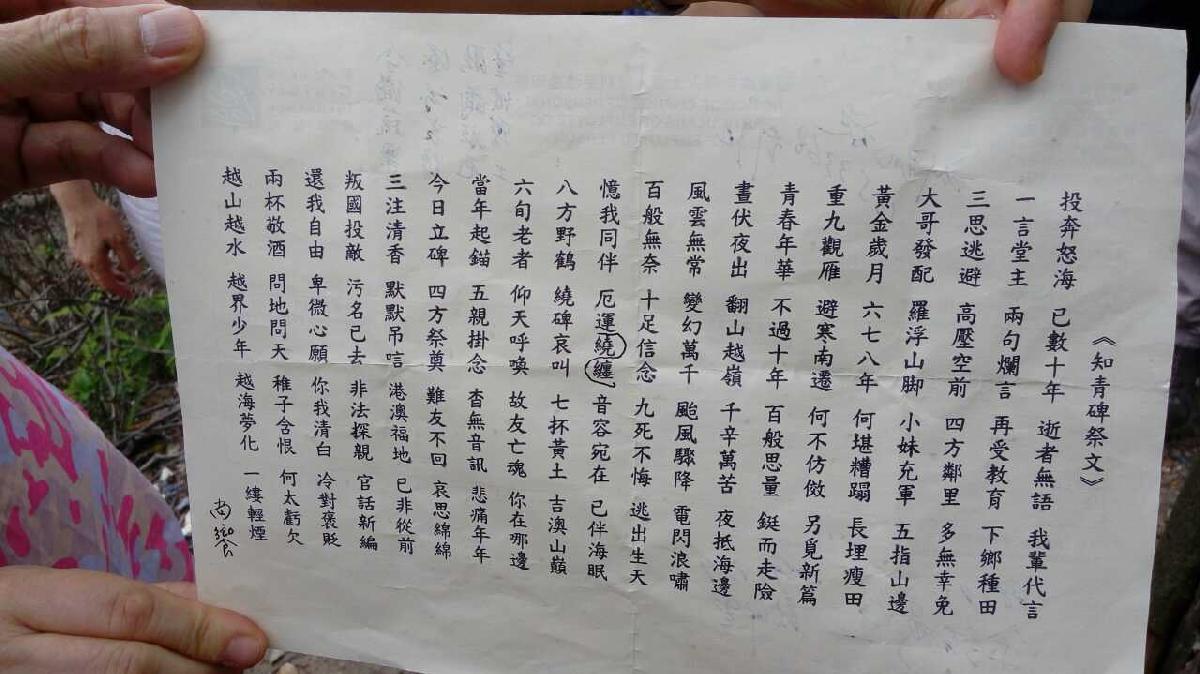 《知青碑祭文》
投奔怒海 已數十年 逝者無語 我輩代言
一言堂主 兩句爛言 再受教育 下鄉種田
三思逃避 高壓空前 四方鄰里 多無幸免
大哥發配 羅浮山脚 小妹充軍 五指山邊
黃金歲月 六七八年 何堪糟蹋 長埋瘦田
重九觀雁 避寒南遷 何不仿傚 另覓新篇
青春年華 不過十年 百般思量 鋌而走險
晝伏夜出 翻山越嶺 千辛萬苦 夜抵海邊
風雲無常 變幻萬千 颱風驟降 電閃浪嘯
百般無奈 十足信念 九死不悔 逃出生天
憶我同伴 厄運繞纏 音容宛在 已伴海眠
八方野鶴 繞碑哀叫 七杯黃土 吉澳山巔
六旬老者 仰天呼喚 故友亡魂 你在哪邊
當年起錨 五親掛念 杳無音訊 悲痛年年
今日立碑 四方祭奠 難友不回 哀思綿綿
三注清香 默默吊唁 港澳福地 已非從前
叛國投敵 污名已去 非法探親 官話新編
還我自由 卑微心願 你我清白 冷對褒貶
兩杯敬酒 問地問天 稚子含恨 何太虧欠
越山越水 越界少年 越海夢化 一縷輕煙
尚饗